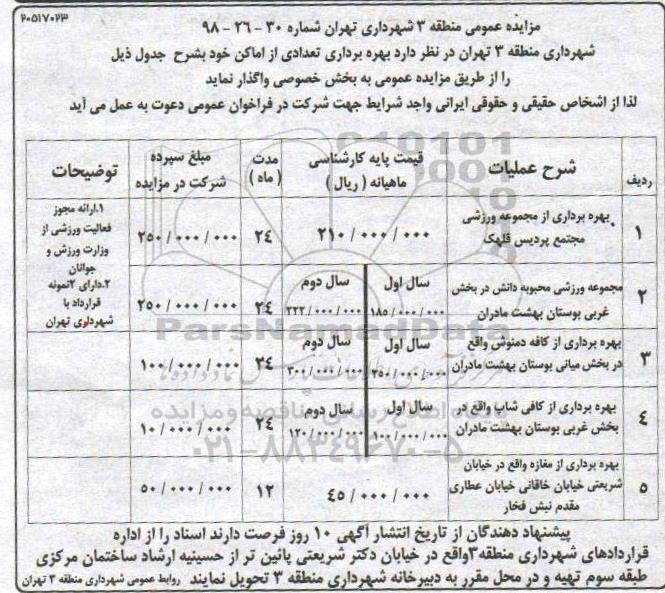 ۲۰۵۱۷۰۲۳
مزایده عمومی منطقه ۳ شهرداری تهران شماره ۳۰ - ۲۶ - ۹۸
شهرداری منطقه ۳ تهران در نظر دارد بهره برداری تعدادی از اماکن خود بشرح جدول ذیل
را از طریق مزایده عمومی به بخش خصوصی واگذار نماید
لذا از اشخاص حقیقی و حقوقی ایرانی واجد شرایط جهت شرکت در فراخوان عمومی دعوت به عمل می آید
ردیف
شرح عملیات
قیمت پایه کارشناسی
ماهیانه (ریال)
مدت
(ماه)
مبلغ سپرده
شرکت در مزایده
توضیحات
۱
بهره برداری از مجموعه ورزشی
مجتمع پردیس قلهک
۲۱۰/۰۰۰/۰۰۰
۲٤
۲۵۰/۰۰۰/۰۰۰
۱.ارائه مجوز
فعالیت ورزشی از
وزارت ورزش و
جوانان
۲.دارای ۲نمونه
قرارداد با
شهرداری تهران
۲
مجموعه ورزشی محبوبه دانش در بخش
غربی بوستان بهشت مادران
سال اول
۱۸۵/۰۰۰/۰۰۰
سال دوم
۲۲۲/۰۰۰/۰۰۰
۲٤
۲۵۰/۰۰۰/۰۰۰
۳
بهره برداری از کافه دمنوش واقع
در بخش میانی بوستان بهشت مادران
سال اول
۲۵۰/۰۰۰/۰۰۰
سال دوم
۳۰۰/۰۰۰/۰۰۰
۲٤
۱۰۰/۰۰۰/۰۰۰
٤
بهره برداری از کافی شاپ واقع در
بخش غربی بوستان بهشت مادران
سال اول
۱۰۰/۰۰۰/۰۰۰
سال دوم
۱۲۰/۰۰۰/۰۰۰
۲٤
۱۰/۰۰۰/۰۰۰
۵
بهره برداری از مغازه واقع در خیابان
شریعتی خیابان خاقانی خیابان عطاری
مقدم نبش فخار
٤۵/۰۰۰/۰۰۰
۱۲
۵۰/۰۰۰/۰۰۰
پیشنهاد دهندگان از تاریخ انتشار آگهی ۱۰ روز فرصت دارند اسناد را از اداره
قراردادهای شهرداری منطقه۳واقع در خیابان دکتر شریعتی پائین تر از حسینیه ارشاد ساختمان مرکزی
طبقه سوم تهیه و در محل مقرر به دبیرخانه شهرداری منطقه ۳ تحویل نمایند روابط عمومی شهرداری منطقه ۳ تهران
ParsNamadData
۰۲۱-۸۸۳٤۹٦۷۰-۵